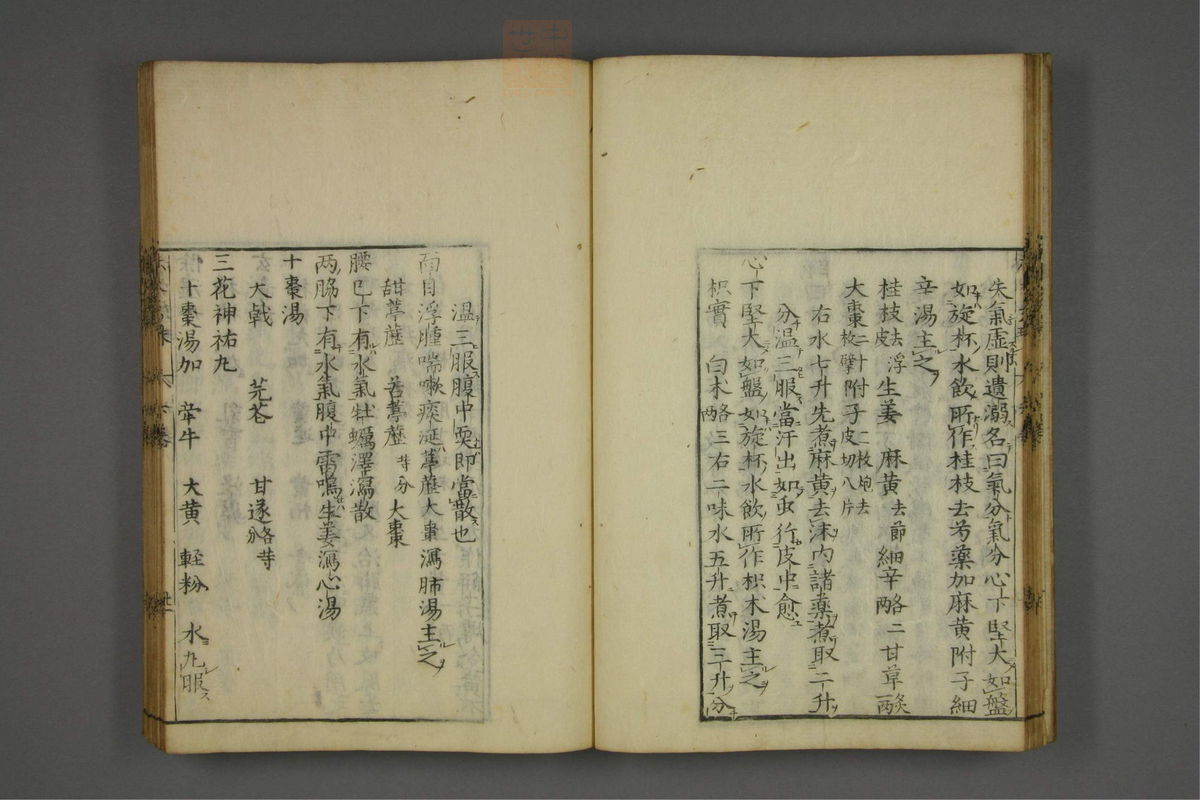 失氣虛則遺溺名曰氣分氣分心下堅大如盤
如旋杯水飲所作桂枝去芍藥加麻黃附子細
辛湯主之
桂枝去皮浮 生姜 麻黃去節細辛各二兩甘草炙兩
大棗二十枚擘附子二枚炮去皮切八片
右水七升先煮麻黃去沫内諸藥煮取二升
分温三服當汗出如虫行皮中愈
心下堅大如盤如旋杯水飲所作枳术湯主之
枳實 白术各兩三右二味水五升煮取三升分
温三服腹中耎即當散也
面目浮腫喘嗽痰涎葶藶大棗瀉肺湯主之
甜葶藶 苦葶藶等分大棗
腰巳下有水氣牡蠣澤瀉散
两脇下有水氣腹中雷鳴生姜瀉心湯
十棗湯
大戟 芫花 甘遂各等分
三花神祐丸
十棗湯加 牽牛 大黄 輕粉 水丸服